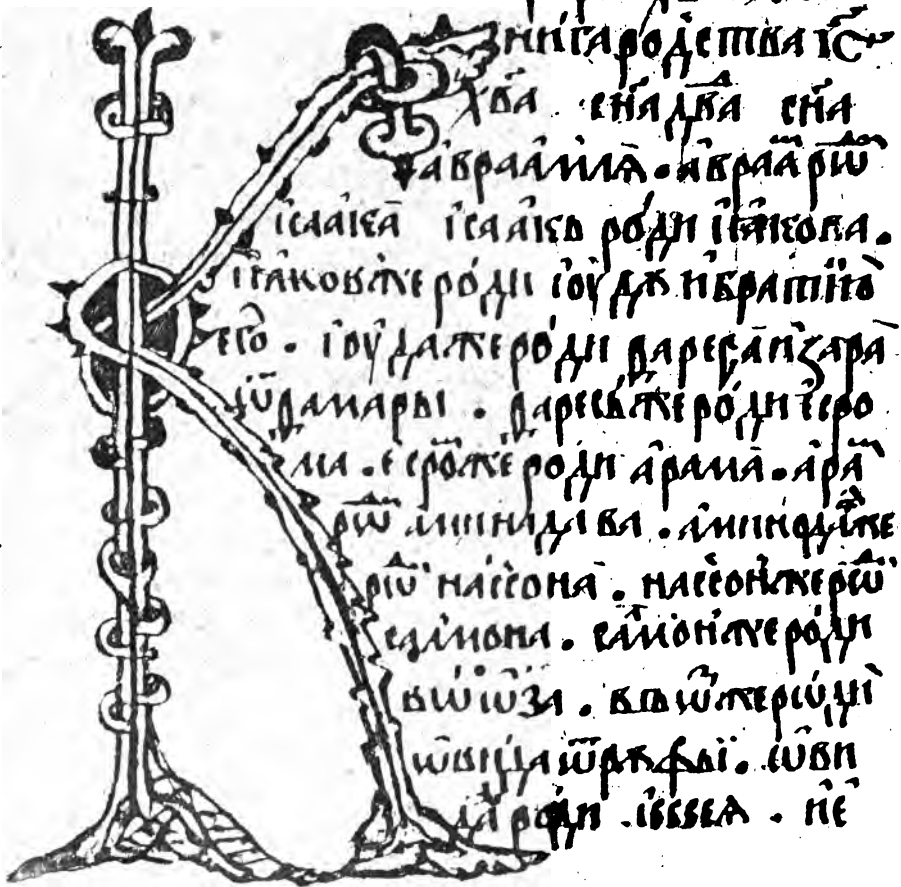 Книга родства іс҃
хв҃а сн҃а дв҃да сн҃а
авраамлѧ. авраа рⷪ҇ѡ
ісаака ісаакъ роди іꙗкова.
іꙗковже роди іоуду и братию
его. іоудаже роди фареса и зара
ѿ фамары. фаресъже роди есро
ма. есроⷨже роди арама. араⷨ
рѡⷣ аминадава. аминодаⷡже
рѡⷣ наассона. наассонже рѡⷣ
салмона. салмонже роди
воѡза. воѡзже роди
ѡвида ѿ руфы. ѡви
д роди іессеѧ. іе